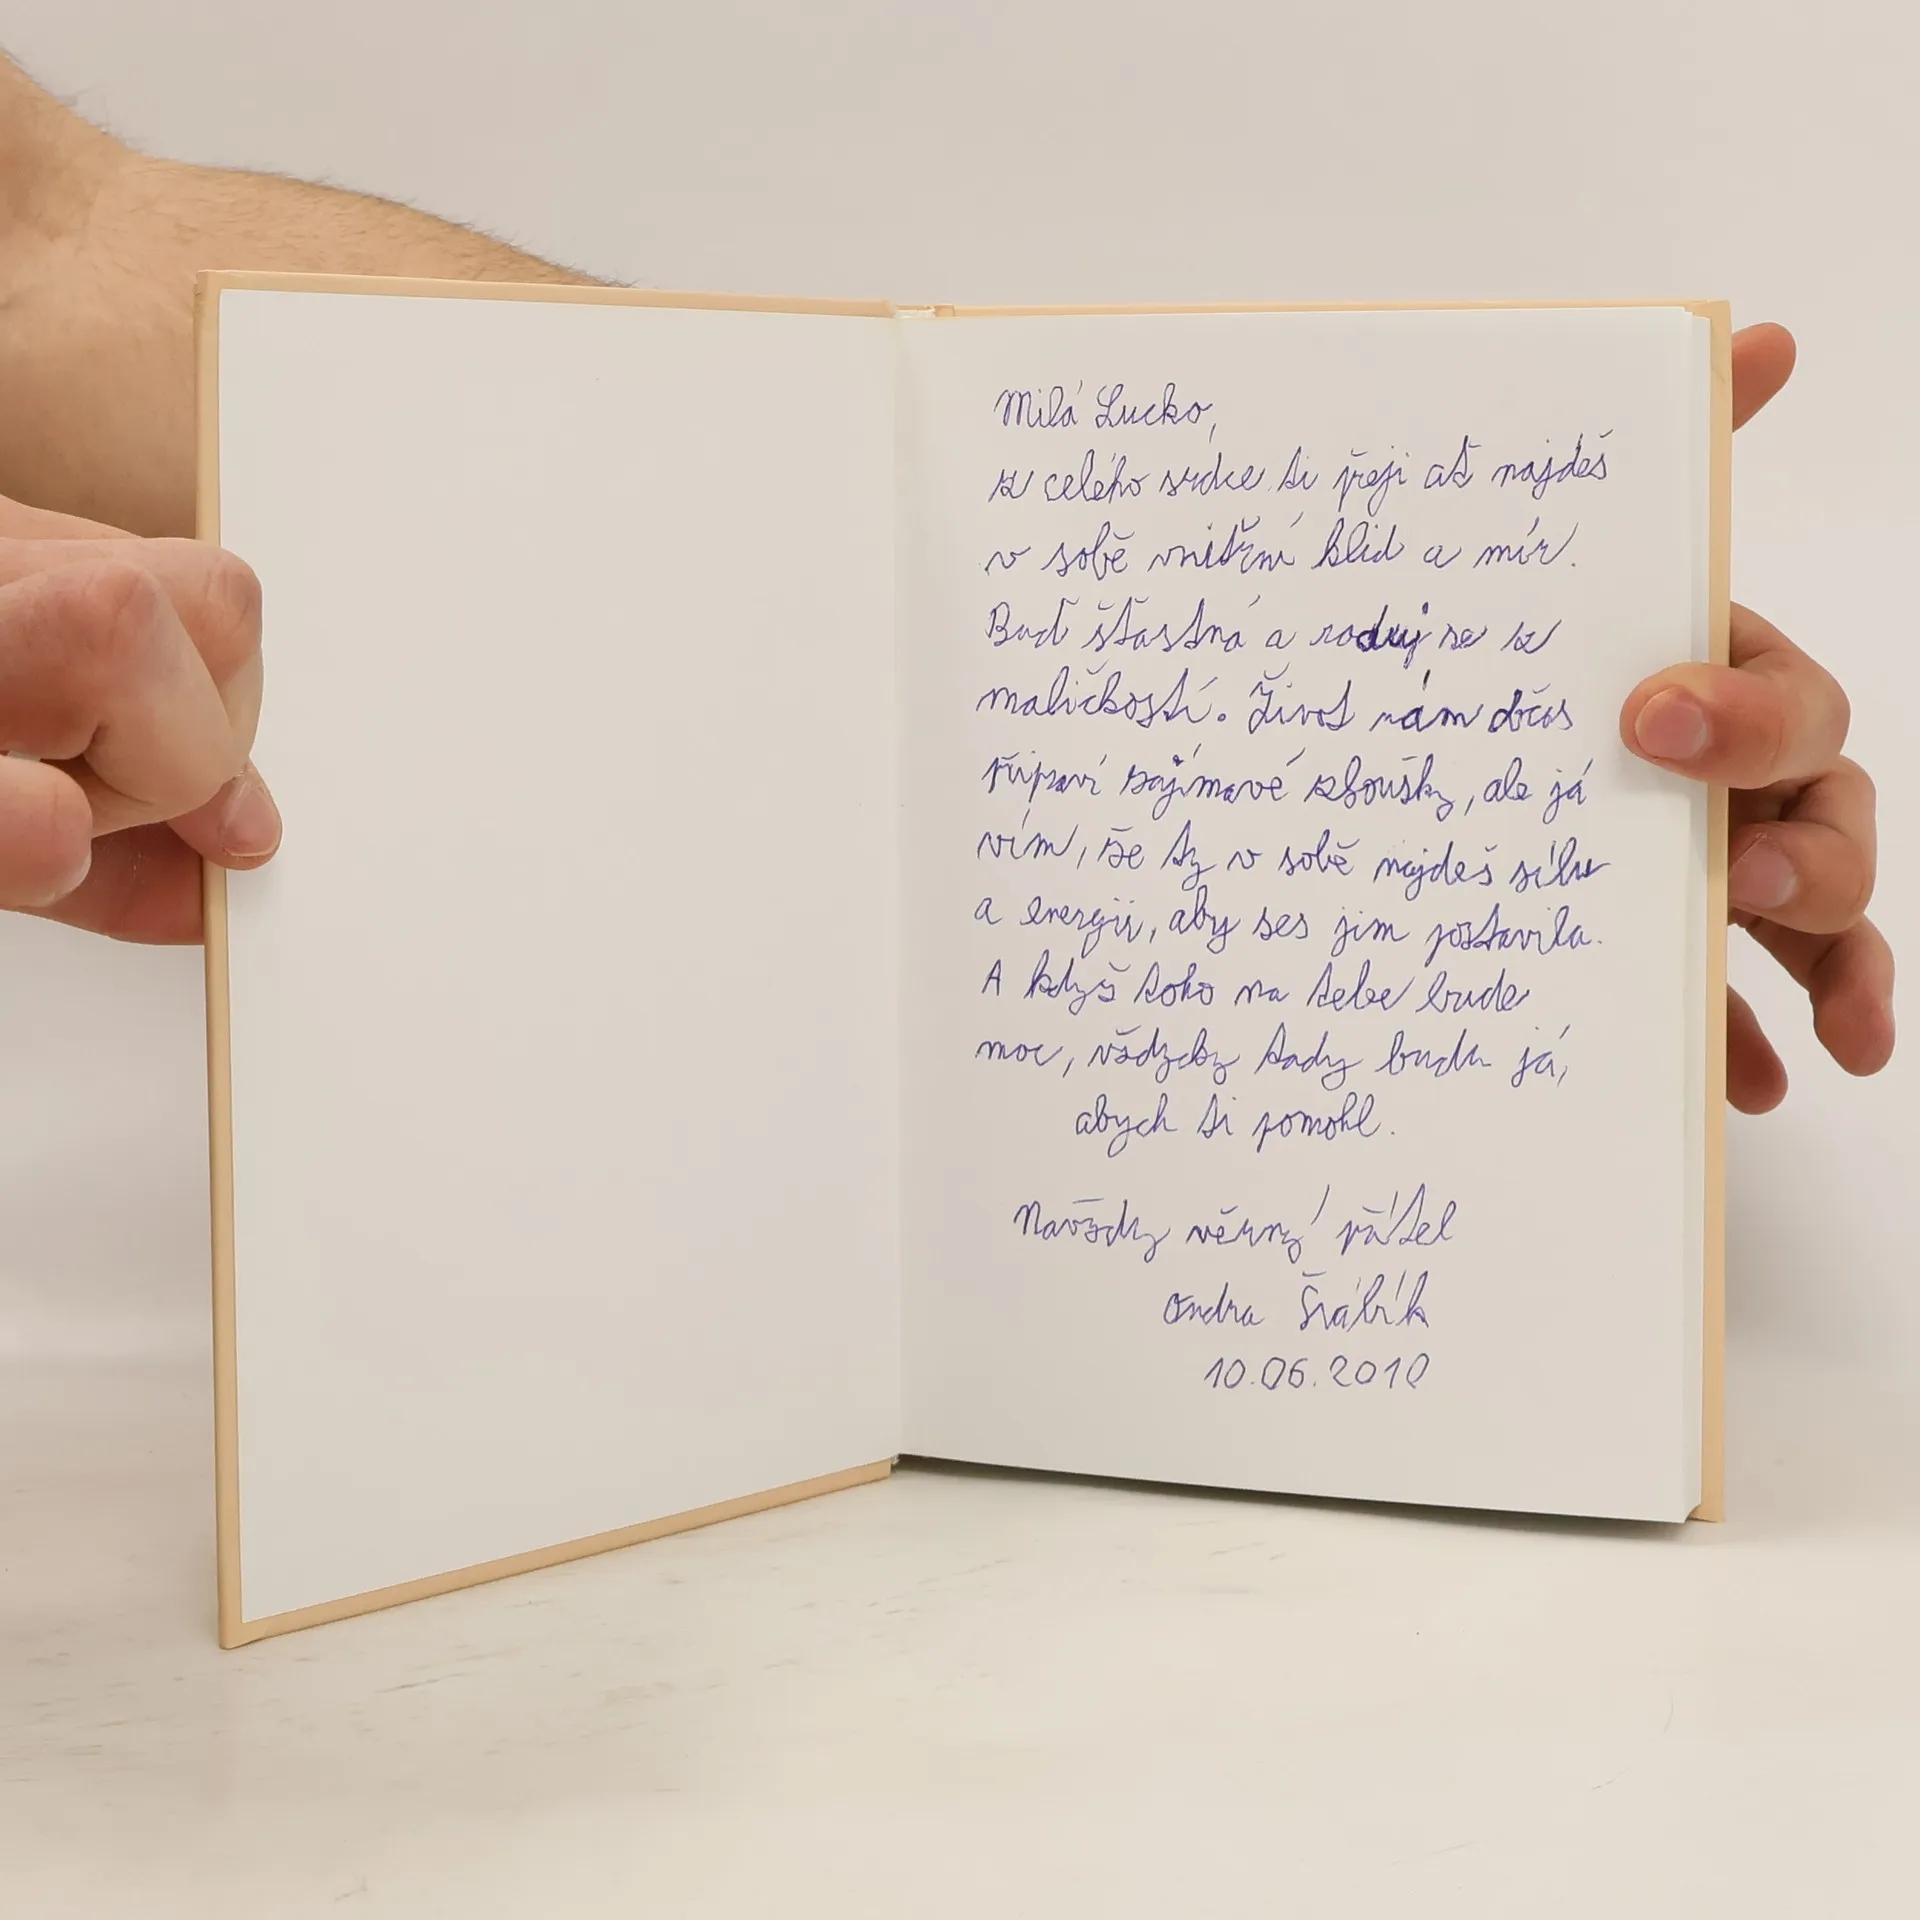 Milá Lucko,
z celého srdce ti přeji ať najdeš
v sobě vnitřní klid a mír.
Buď šťastná a raduj se z
maličkostí. Život nám občas
připraví zajímavé zkoušky, ale já
vím, že ty v sobě najdeš sílu
a energii, aby ses jim postavila.
A když toho na tebe bude
moc, vždycky tady budu já,
abych ti pomohl.
Navždy věrný přítel
Ondra
10.06.2010